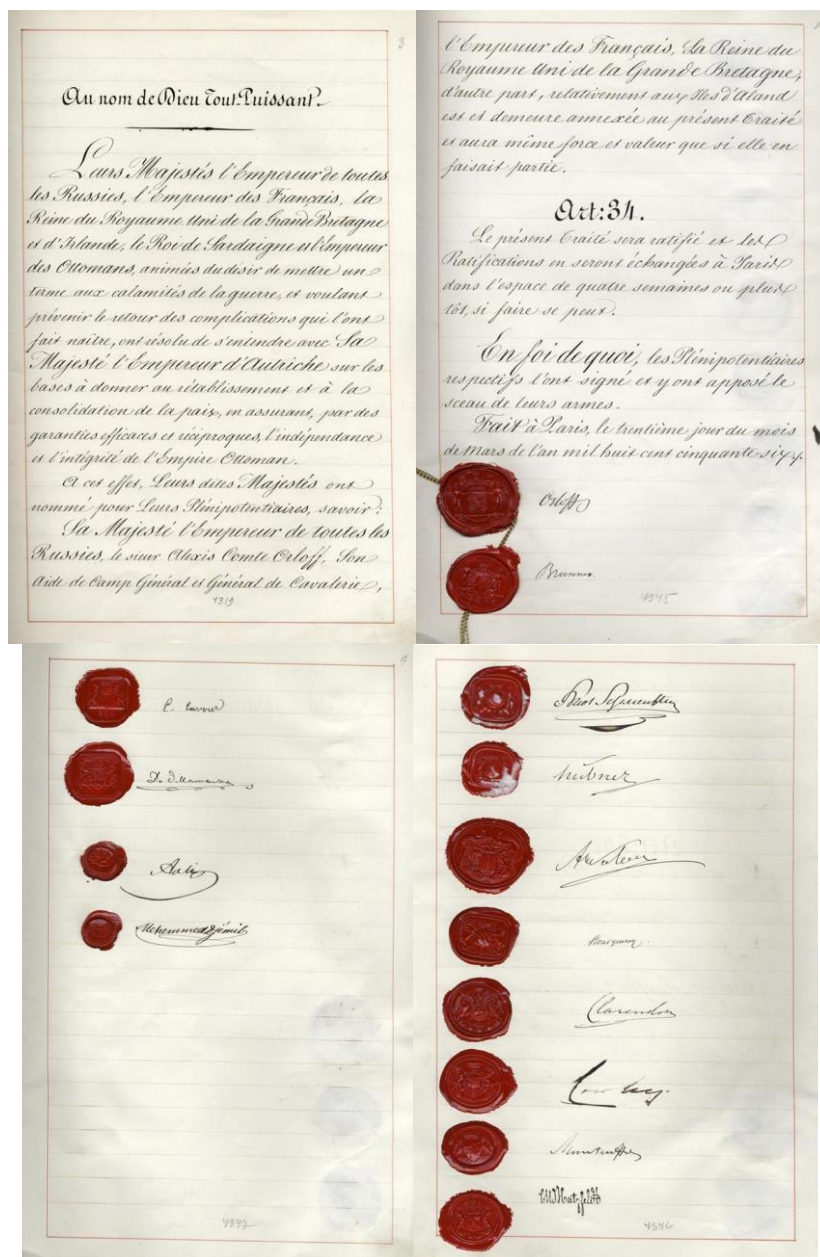 3
Au nom de Dieu Tout-Puissant.
Leurs Majestés l'Empereur de toutes
les Russies, l'Empereur des Français, la
Reine du Royaume Uni de la Grande Bretagne
et d'Irlande, le Roi de Sardaigne et l'Empereur
des Ottomans, animées du désir de mettre un
terme aux calamités de la guerre, et voulant
prévenir le retour des complications qui l'ont
fait naître, ont résolu de s'entendre avec Sa
Majesté l'Empereur d'Autriche sur les
bases à donner au rétablissement et à la
consolidation de la paix, en assurant, par des
garanties efficaces et réciproques, l'indépendance
et l'intégrité de l'Empire Ottoman.
A cet effet, Leurs dites Majestés ont
nommé pour Leurs Plénipotentiaires, savoir:
Sa Majesté l'Empereur de toutes les
Russies, le sieur Alexis Comte Orloff, Son
Aide de Camp Général et Général de Cavalerie,
4319
l'Empereur des Français, La Reine du
Royaume Uni de la Grande Bretagne,
d'autre part, relativement aux Iles d'Aland
est et demeure annexée au présent Traité
et aura même force et valeur que si elle en
faisait partie.
Art: 34.
Le présent Traité sera ratifié et les
Ratifications en seront échangées à Paris
dans l'espace de quatre semaines ou plus
tôt, si faire se peut.
En foi de quoi, les Plénipotentiaires
respectifs l'ont signé et y ont apposé le
sceau de leurs armes.
Fait à Paris, le trentième jour du mois
de Mars de l'an mil huit cent cinquante six.
Orloff
Brunnow
4345
C. Cavour
Aali
Mehemmed Djémil
4347
Hübner
Bourqueney
Clarendon
Cowley.
Manteuffel
Hatzfeldt
4346